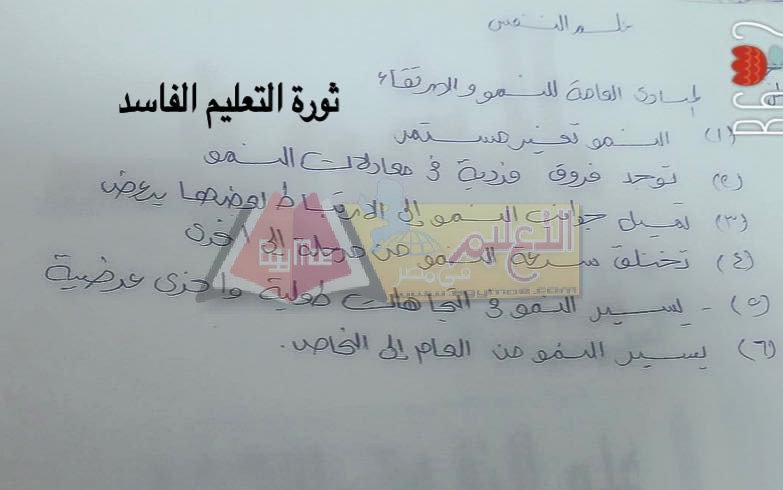 علم النفس
المبادئ العامة للنمو والارتقاء
ثورة التعليم الفاسد
(١) النمو تغير مستمر
(٢) توجد فروق فردية فى معادلات النمو
(٣) تميل جوانب النمو إلى الارتباط بعضها ببعض
(٤) تختلف سرعة النمو من مرحلة إلى أخرى
(٥) - يسير النمو فى اتجاهات طولية وأخرى عرضية
(٦) يسير النمو من العام إلى الخاص.
التعليم
فى مصر